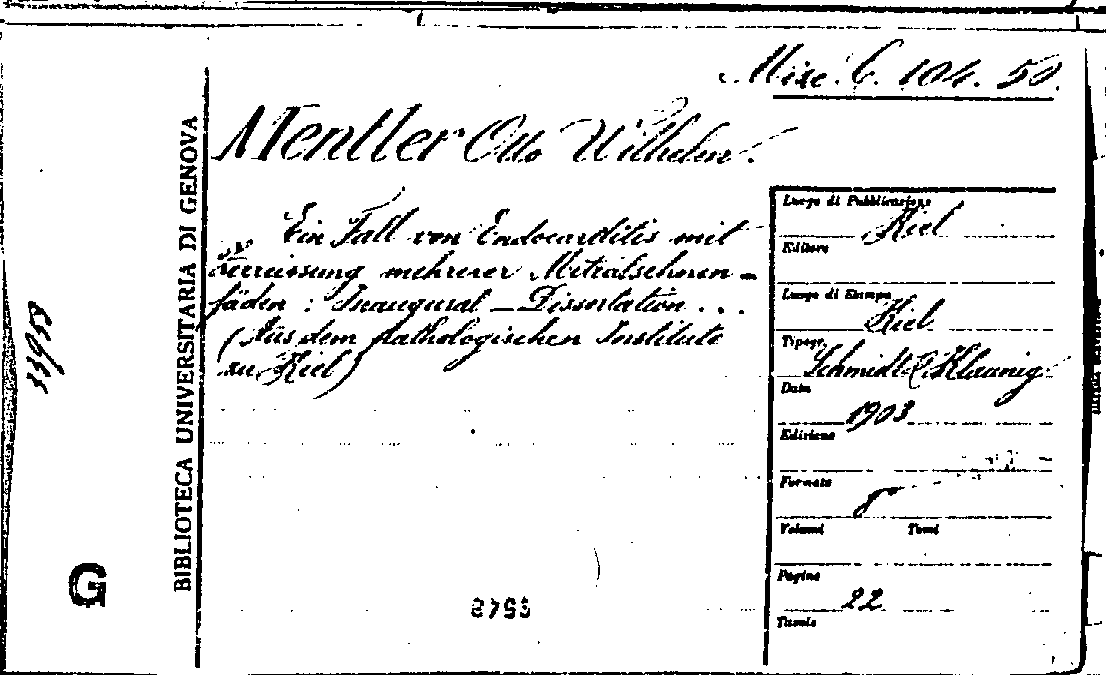 Misc. C. 104. 50.
Mentler Otto Wilhelm.
Ein Fall von Endocarditis mit
Zerreissung mehrerer Mitralsehnen-
fäden : Inaugural-Dissertation ...
(Aus dem pathologischen Institute
zu Kiel)
BIBLIOTECA UNIVERSITARIA DI GENOVA
G
Luogo di Pubblicazione
Kiel
Editore
Luogo di Stampa
Kiel
Tipogr.
Schmidt & Klaunig
Data
1903
Edizione
Formato
8°
Volumi Tomi
Pagine
22
Tavole